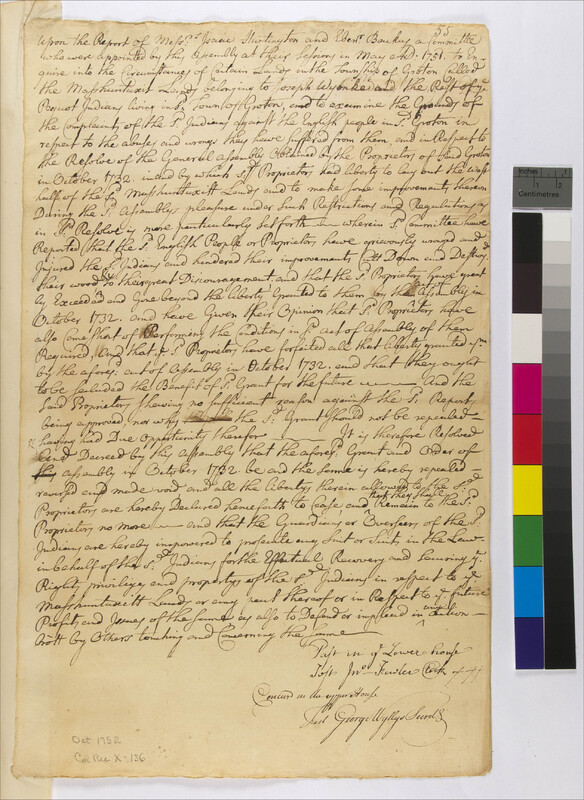 55
Upon the Report of Mess.rs Isaac Huntington and Eben.r Backus a Committe
who were appointed by this Assembly at their Sessions in May AD. 1751. to En
quire into the Circumstances of Certain Lands in the Township of Groton Called
the Masshuntuxitt Lands belonging to Joseph Wyonkee and the Rest of y.e
Pequot Indians living in s.d Town of Groton, and to examine the Grounds of
the Complaints of the s.d Indians against the English people in s.d Groton in
respect to the abuses and wrongs they have suffered from them, and in Respect to
the Resolve of the General assembly Obtained by the Proprietors of said Groton
in October 1732. in and by which s.d Proprietors had liberty to lay out the West
half of the s.d Masshuntuxitt Lands and to make some improvements thereon
During the s.d Assemblys pleasure under such Restrictions and Regulations as
in s.d Resolve is more particularly set forth — wherein s.d Committee have
Reported that the s.d English People or Proprietors have grievously wronged and
Injured the s.d Indians and hindered their improvements Cutt Down and Destroy.d
their wood to their great Discouragement and that the s.d Proprietors have great
ly Exceeded and gone beyond the liberty Granted to them by the Assembly in
October 1732. and have Given their Opinion that s.d Proprietors have
also Come short of Performing the Conditions in s.d act of Assembly of them
Required, and that y.e s.d Proprietors have forfeited all that liberty granted y.m
by the afores.d act of Assembly in October 1732. and that they ought
to be secluded the Benefit of s.d Grant for the future — And the
said Proprietors shewing no sufficient reason against the s.d Report
being approved, nor why the s.d Grant should not be repealed
having had Due Opportunity therefor — It is therefore Resolved
and Decreed by this assembly that the afores.d Grant and Order of
assembly in October 1732 be and the same is hereby repealed
revers'd and made void and all the liberty therein allowed to the s.d
Proprietors are hereby Declared henceforth to Cease and that they shall remain to the s.d
Proprietors no more — and that the Guardians or Overseers of the s.d
Indians are hereby impowered to prosecute any Suit or Suits in the Law
in behalf of the s.d Indians for the Effectual Recovery and securing y.e
Right, privilege and property of the s.d Indians in respect to y.e
Masshuntuxitt Land or any part thereof or in Respect to y.e future
Profits and Issues of the same as also to Defend or implead in any action
bro't by Others touching and Concerning the same
Past in y.e Lower house
Test Jn.o Fowler Clerk
Concurd in the upper House
Test George Wyllys Secret.y
Oct 1752
Col Rec X: 136
Inches
1
2
Centimetres